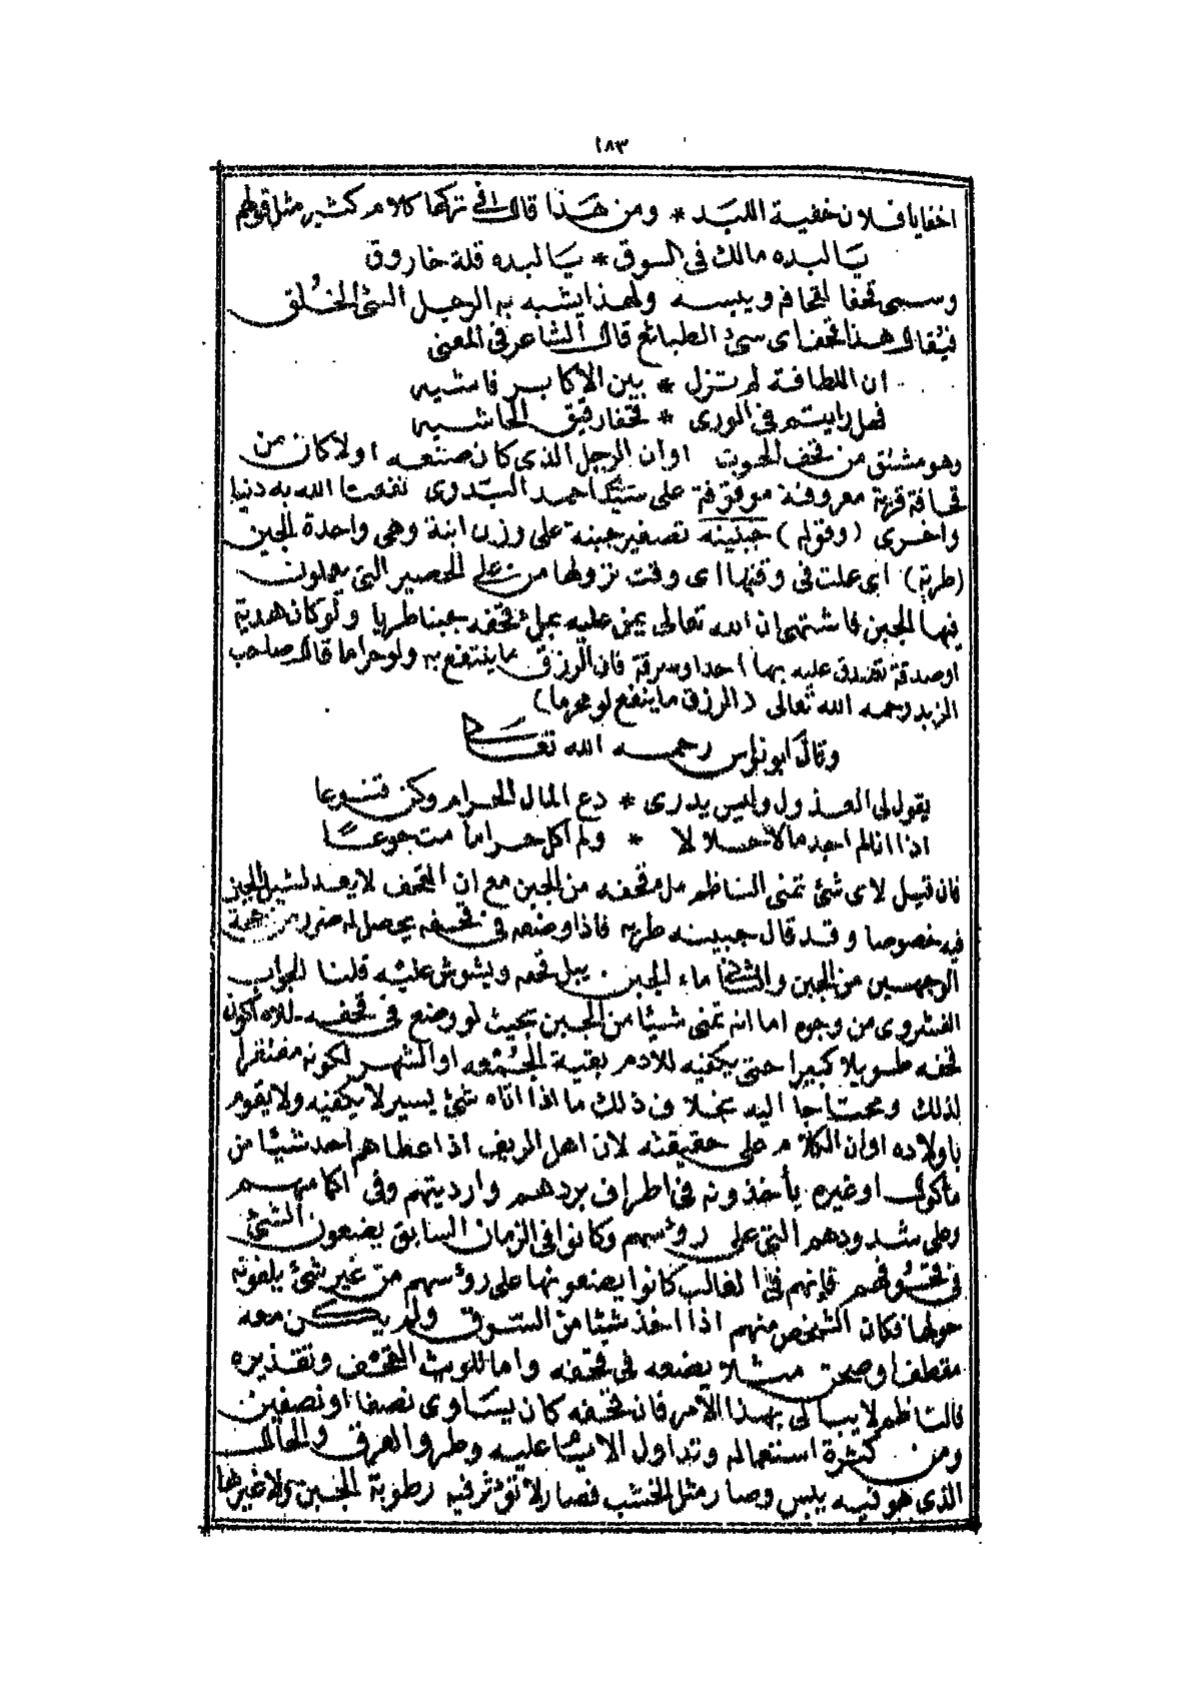 ١٨٣
اخفايا فلان خفية اللبد * ومن هذا قالت في تركها كلام كثير مثل قولهم
يا لبده مالك في السوق * يا لبده قلة خاروق
وسمى قحفا لقحافه ويبسه ولهذا يشبه به الرجل السئ الخلق
فيقال هذا قحف اى سئ الطبائع قال الشاعر في المعنى
ان اللطافة لم تزل * بين الاكابر فاشيه
فهل رايتم في الورى * قحفا رقيق الحاشيه
وهو مشتق من قحف الحوت او ان الرجل الذى كان صنعه اولا كان من
قحافة قرية معروفة موقوفة على سيدى احمد البدوى نفعنا الله به دنيا
واخرى (وقوله) جبينه تصغير جبنة على وزن ابنة وهى واحدة الجبن
(طرية) اى علت في وقتها اى وقت نزولها من على الحصير التى يعملون
فيها الجبن فاشتهى ان الله تعالى يمن عليه بملئ قحفه جبنا طريا ولو كان هدية
او صدقة تصدق عليه بها احد او سرقة فان الرزق ما ينتفع به ولو حراما قال صاحب
الزبد رحمه الله تعالى (الرزق ما ينفع لو محرما)
وقال ابو نواس رحمه الله تعالى
يقول لى العذول وليس يدرى * دع المال الحرام وكن قنوعا
اذا انا لم اجد مالا حلالا * ولم آكل حراما مت جوعا
فان قيل لاى شئ تمنى الناظم ملء قحفه من الجبن مع ان القحف لا يعد لشيل الجبن
فيه خصوصا وقد قال جبينه طريه فاذا وضعه في قحفه يحصل له ضرر من جهة
الوجهين من الجبن والشانى ماء الجبن يبل قحفه ويشوش عليه قلنا الجواب
الفشروى من وجوه اما انه تمنى شيئا من الجبن بحيث لو وضع في قحفه لملاه لكون
قحفه طويلا كبيرا حتى يكفيه للادم بقية الجمعه او الشهر لكونه مفتقرا
لذلك ومحتاجا اليه بخلاف ذلك ما اذا اتاه شئ يسير لا يكفيه ولا يقوم
باولاده او ان الكلام على حقيقته لان اهل الريف اذا اعطاهم احد شيئا من
مأكول او غيره يأخذونه في اطراف بردهم وارديتهم وفى اكمامهم
وعلى شدودهم التى على رؤسهم وكانوا في الزمان السابق يضعون الشئ
في قحوفهم فإنهم في الغالب كانوا يضعونها على رؤسهم من غير شئ يلفونه
حولها فكان الشخص منهم اذا اخذ شيئا من السوق ولم يكن معه
مقطف او صحن مثلا يضعه في قحفه واما تلويث القحف وتقذيره
فالناظم لا يبالى بهذا الامر فان قحفه كان يساوى نصفا او نصفين
ومن كثرة استعماله وتداول الايام عليه وطروا العرق والحالة
الذى هو فيه يبس وصار مثل الخشب فصار لا تؤثر فيه رطوبة الجبن ولا غيرها